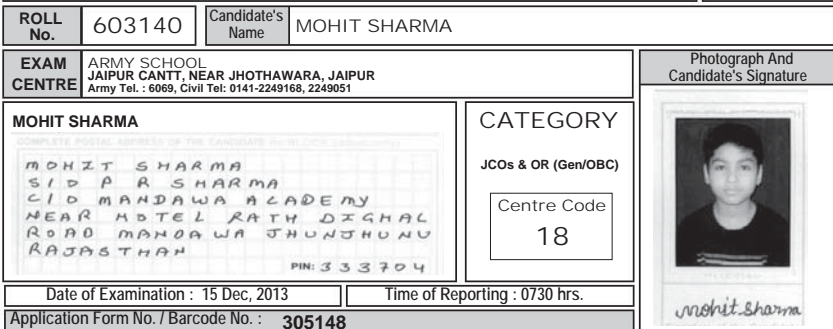 ROLL No. 603140 Candidate's Name MOHIT SHARMA
EXAM CENTRE
ARMY SCHOOL
JAIPUR CANTT, NEAR JHOTHAWARA, JAIPUR
Army Tel. : 6069, Civil Tel: 0141-2249168, 2249051
Photograph And
Candidate's Signature
MOHIT SHARMA
COMPLETE POSTAL ADDRESS OF THE CANDIDATE
MOHIT SHARMA
S/O P R SHARMA
C/O MANDAWA ACADEMY
NEAR HOTEL RATH DIGHAL
ROAD MANDAWA JHUNJHUNU
RAJASTHAN
PIN: 333704
CATEGORY
JCOs & OR (Gen/OBC)
Centre Code
18
mohit sharma
Date of Examination : 15 Dec, 2013 Time of Reporting : 0730 hrs.
Application Form No. / Barcode No. : 305148